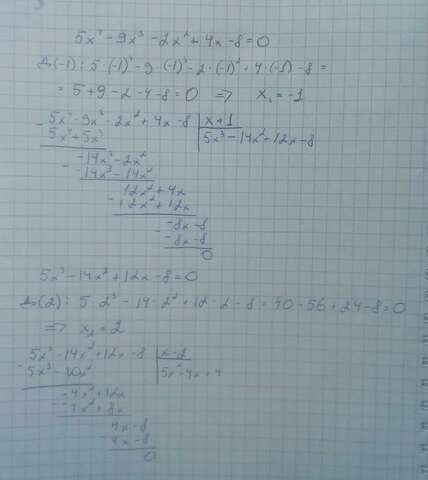 5x⁴ - 9x³ - 2x² + 4x - 8 = 0
Д(-1): 5·(-1)⁴ - 9·(-1)³ - 2·(-1)² + 4·(-1) - 8 =
= 5 + 9 - 2 - 4 - 8 = 0 => x₁ = -1
- 5x⁴ - 9x³ - 2x² + 4x - 8 | x + 1
5x⁴ + 5x³ | 5x³ - 14x² + 12x - 8
- -14x³ - 2x²
-14x³ - 14x²
- 12x² + 4x
12x² + 12x
- -8x - 8
-8x - 8
0
5x³ - 14x² + 12x - 8 = 0
Д(2): 5·2³ - 14·2² + 12·2 - 8 = 40 - 56 + 24 - 8 = 0
=> x₂ = 2
- 5x³ - 14x² + 12x - 8 | x - 2
5x³ - 10x² | 5x² - 4x + 4
- -4x² + 12x
-4x² + 8x
4x - 8
4x - 8
0